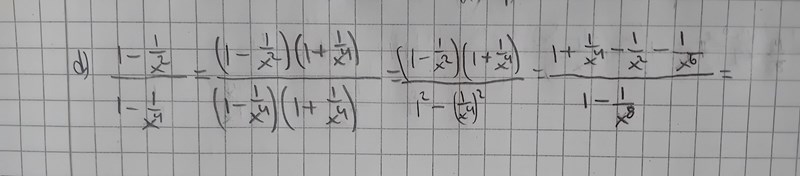 d) \frac{1-\frac{1}{x^2}}{1-\frac{1}{x^4}} = \frac{(1-\frac{1}{x^2})(1+\frac{1}{x^4})}{(1-\frac{1}{x^4})(1+\frac{1}{x^4})} = \frac{(1-\frac{1}{x^2})(1+\frac{1}{x^4})}{1^2-(\frac{1}{x^4})^2} = \frac{1+\frac{1}{x^4}-\frac{1}{x^2}-\frac{1}{x^6}}{1-\frac{1}{x^8}} =